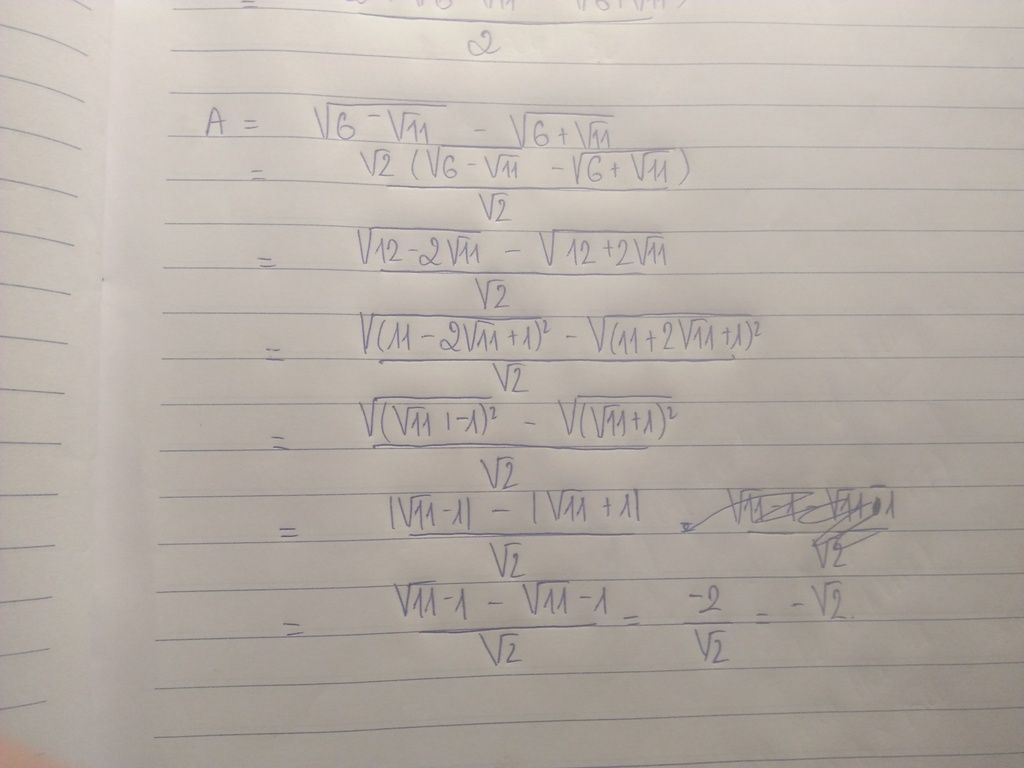 2
A = √(6 - √11) - √(6 + √11)
= √2 (√(6 - √11) - √(6 + √11)) / √2
= (√(12 - 2√11) - √(12 + 2√11)) / √2
= (√((11 - 2√11 + 1)²) - √((11 + 2√11 + 1)²)) / √2
= (√((√11 - 1)²) - √((√11 + 1)²)) / √2
= (|√11 - 1| - |√11 + 1|) / √2
= (√11 - 1 - √11 - 1) / √2 = -2 / √2 = -√2.